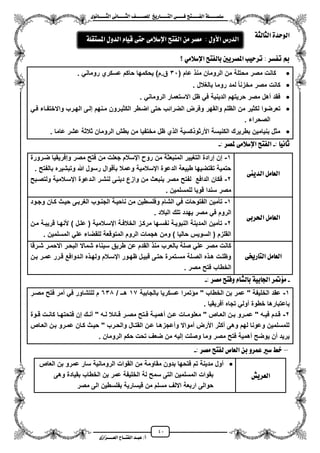 سلسلة الفتح في التاريخ للصف الثاني الثانوي
الوحدة الثالثة
الدرس الأول : مصر من الفتح الإسلامى حتى قيام الدول المستقلة
بم تفسر : ترحيب المصريين بالفتح الإسلامى ؟
كانت مصر محتلة من الرومان منذ عام (٣٠ ق.م) يحكمها حاكم عسكري رومانى .
كانت مصر مخزناً لمد روما بالغلال .
فقد أهل مصر حريتهم الدينية في ظل الاستعمار الروماني .
تعرضوا لكثير من الظلم والقهر وفرض الضرائب حتى اضطر الكثيرون منهم إلى الهرب والاختفاء في الصحراء .
مثل بنيامين بطريرك الكنيسة الأرثوذكسية الذي ظل مختفيا من بطش الرومان ثلاثة عشر عاما .
ثانياً :ـ الفتح الإسلامى لمصر :ـ
العامل الدينى
١- إن إرادة التغيير المنبعثة من روح الإسلام جعلت من فتح مصر وإفريقيا ضرورة حتمية تقتضيها طبيعة الدعوة الإسلامية وعملا بأقوال رسول الله وتبشيره بالفتح .
٢- فكان الدافع لفتح مصر ينبعث من وازع دينى لنشر الدعوة الإسلامية ولتصبح مصر سنداً قوياً للمسلمين .
العامل الحربى
١- تأمين الفتوحات في الشام وفلسطين من ناحية الجنوب الغربى حيث كان وجود الروم في مصر يهدد تلك البلاد .
٢- تأمين المدينة النبوية نفسها مركز الخلافة الإسلامية ( علل ) لأنها قريبة من القلزم ( السويس حاليا ) ومن هجمات الروم المتوقعة للقضاء على المسلمين .
العامل التاريخى
كانت مصر على صلة بالعرب منذ القدم عن طريق سيناء شمالا البحر الاحمر شرقا وظلت هذه الصلة مستمرة حتى قبيل ظهور الإسلام ولهذه الدوافع قرر عمر بن الخطاب فتح مصر .
ـ مؤتمر الجابية بالشام وفتح مصر :ـ
١- عقد الخليفة " عمر بن الخطاب " مؤتمرا عسكريا بالجابية ١٧ هـ / ٦٣٨ م للتشاور فى أمر فتح مصر باعتبارها خطوة أولي تجاه أفريقيا .
٢- قدم فيه " عمرو بن العاص " معلومات عن أهمية فتح مصر قائلا له " أنك إن فتحتها كانت قوة للمسلمين وعونا لهم وهى أكثر الأرض أموالا وأعجزها عن القتال والحرب " حيث كان عمرو بن العاص يريد أن يوضح أهمية فتح مصر وما وصلت إليه من ضعف تحت حكم الرومان .
ـ خط سير عمرو بن العاص لفتح مصر :ـ
العريش
أول مدينة تم فتحها بدون مقاومة من القوات الرومانية سار عمرو بن العاص بقوات المسلمين التى سمح لة الخليفة عمر بن الخطاب بقيادة وهى حوالى اربعة الالاف مسلم من قيسارية بفلسطين الى مصر
٤٠